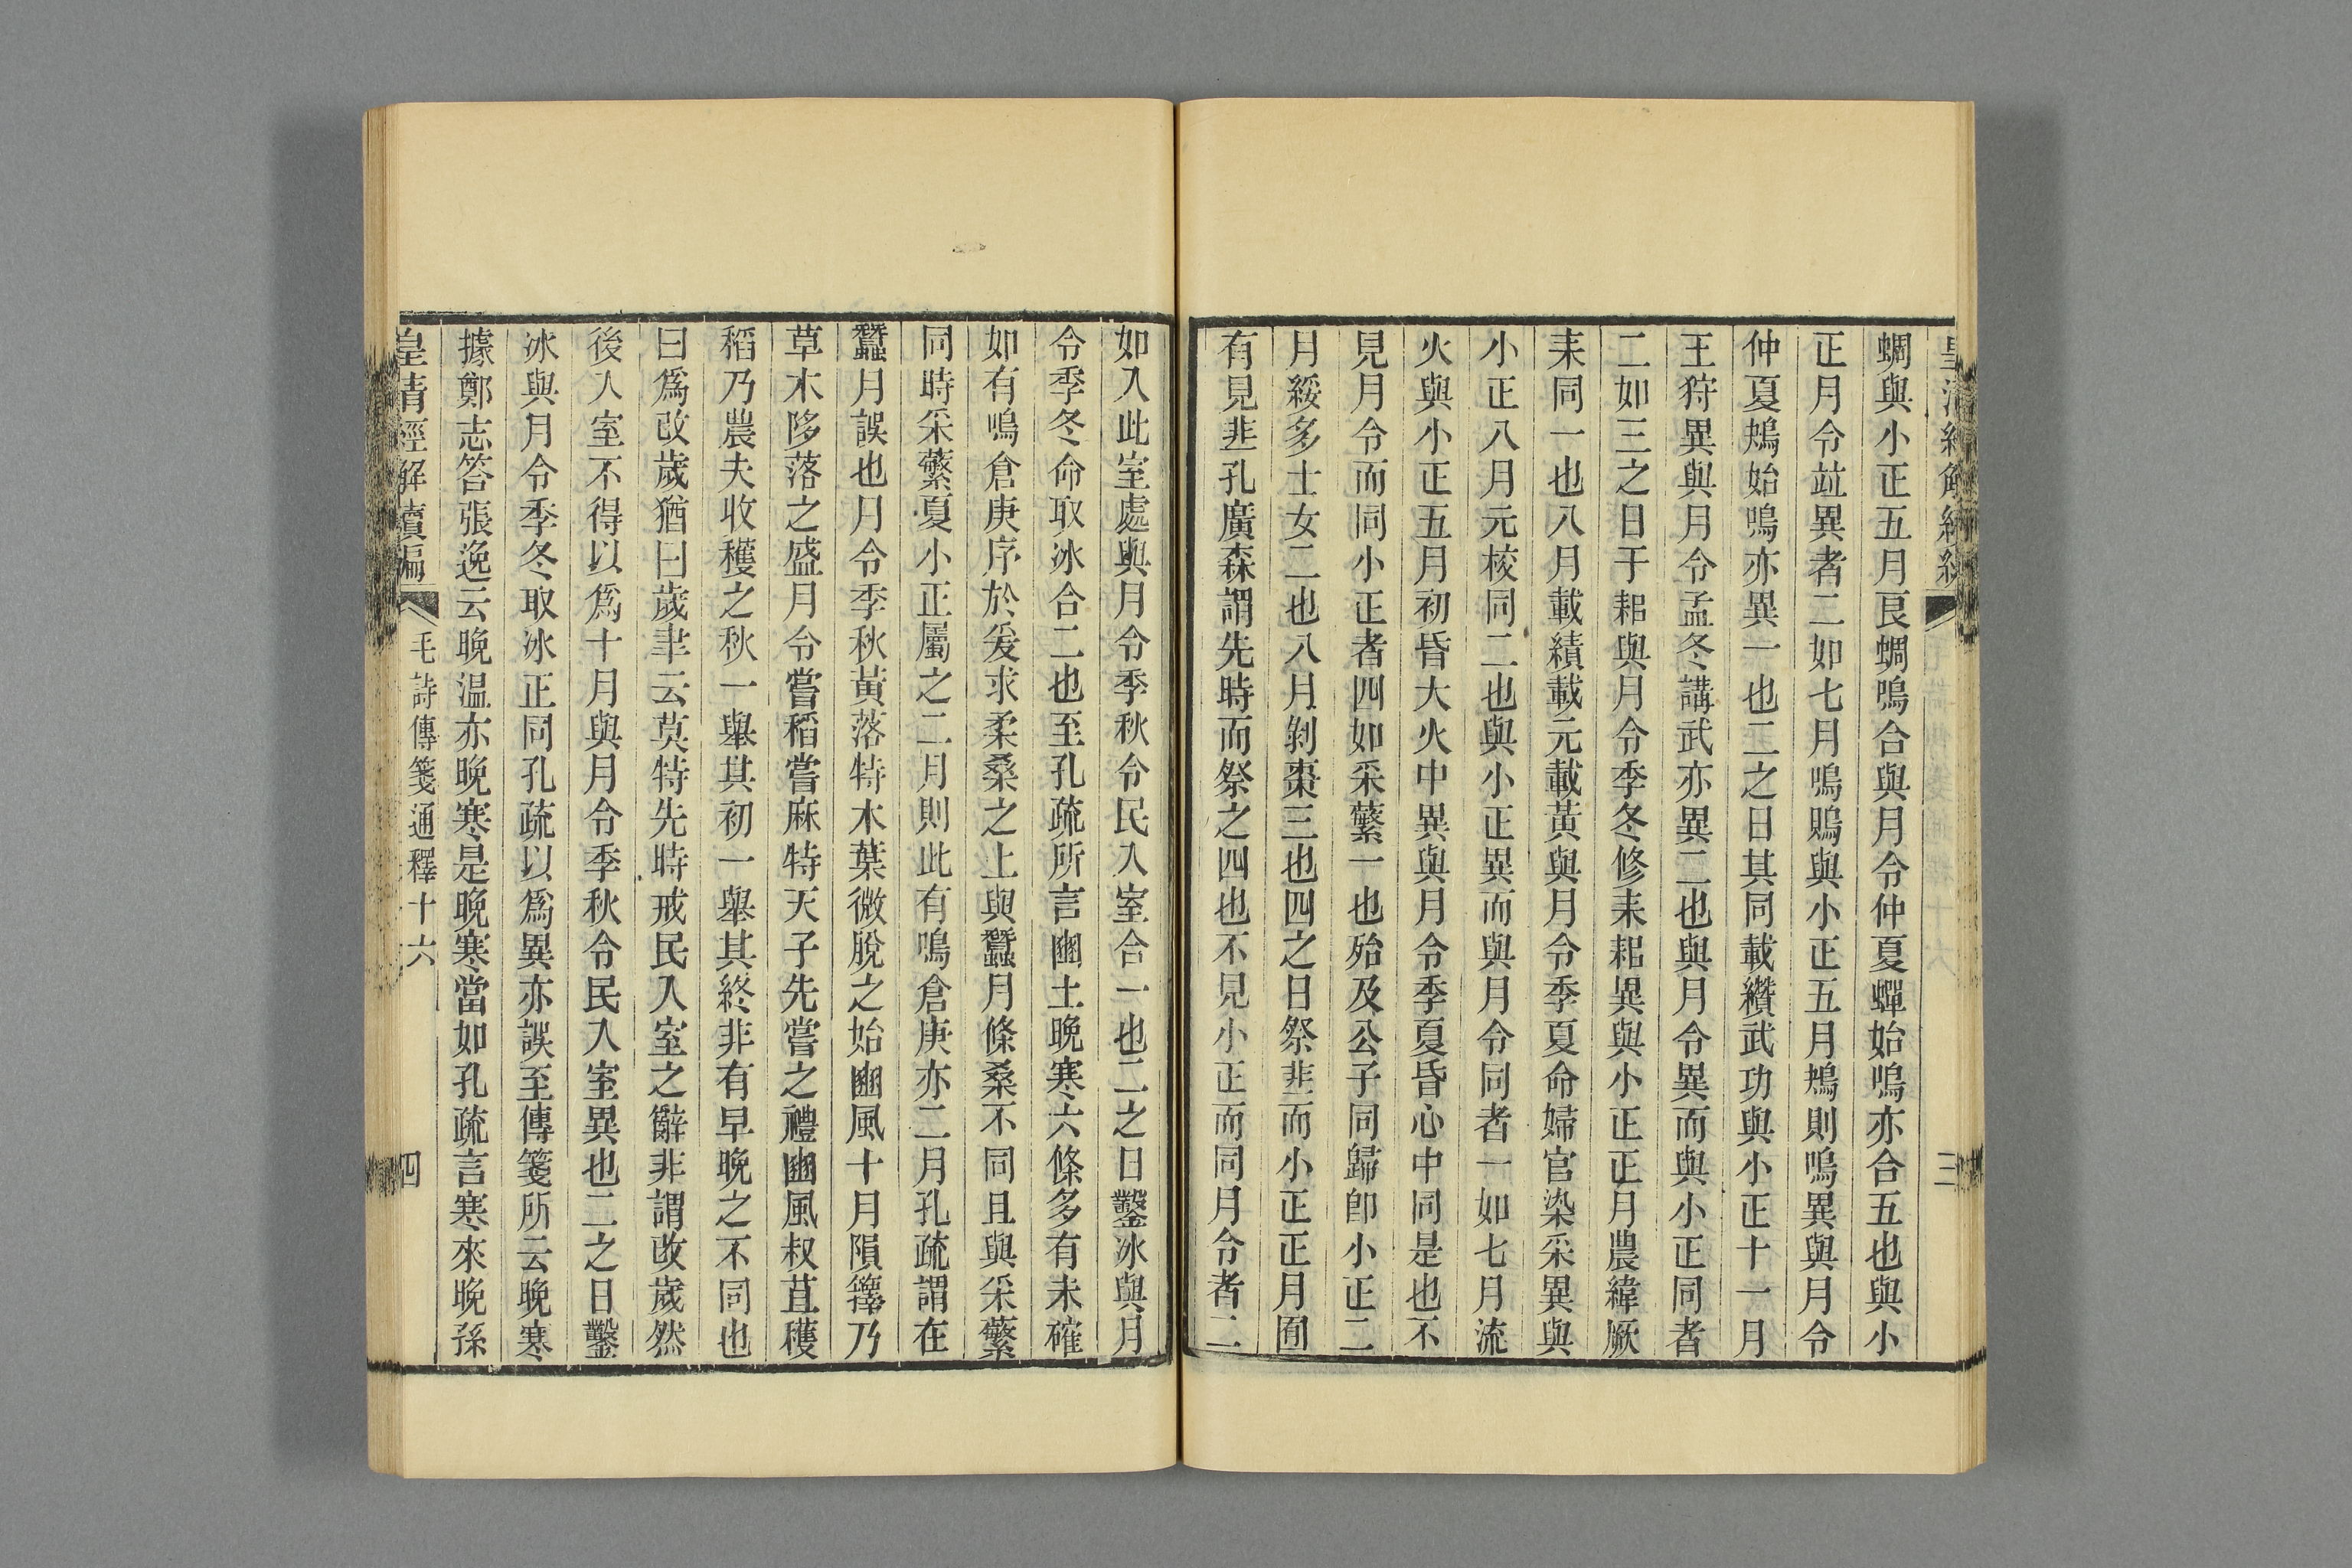 蜩與小正五月良蜩鳴合與月令仲夏蟬始鳴亦合五也與小
正月令竝異者二如七月鳴鵙與小正五月鴂則鳴異與月令
仲夏鵙始鳴亦異一也二之日其同載纘武功與小正十一月
王狩異與月令孟冬講武亦異二也與月令異而與小正同者
二如三之日于耜與月令季冬修耒耜異與小正正月農緯厥
耒同一也八月載績載元載黃與月令季夏命婦官染采異與
小正八月元校同二也與小正異而與月令同者一如七月流
火與小正五月初昏大火中異與月令季夏昏心中同是也不
見月令而同小正者四如采蘩一也殆及公子同歸卽小正二
月綏多士女二也八月剝棗三也四之日祭韭而小正正月囿
有見韭孔廣森謂先時而祭之四也不見小正而同月令者二
如入此室處與月令季秋令民入室合一也二之日鑿冰與月
令季冬命取冰合二也至孔疏所言豳土晚寒六條多有未確
如有鳴倉庚序於爰求柔桑之上與蠶月條桑不同且與采蘩
同時采蘩夏小正屬之二月則此有鳴倉庚亦二月孔疏謂在
蠶月誤也月令季秋黃落特木葉微脫之始豳風十月隕籜乃
草木陊落之盛月令嘗稻嘗麻特天子先嘗之禮豳風叔苴穫
稻乃農夫收穫之秋一舉其初一舉其終非有早晚之不同也
曰爲改歲猶曰歲聿云莫特先時戒民入室之辭非謂改歲然
後入室不得以爲十月與月令季秋令民入室異也二之日鑿
冰與月令季冬取冰正同孔疏以爲異亦誤至傳箋所云晚寒
據鄭志答張逸云晚温亦晚寒是晚寒當如孔疏言寒來晚孫
皇清經解續編 毛詩傳箋通釋十六 四